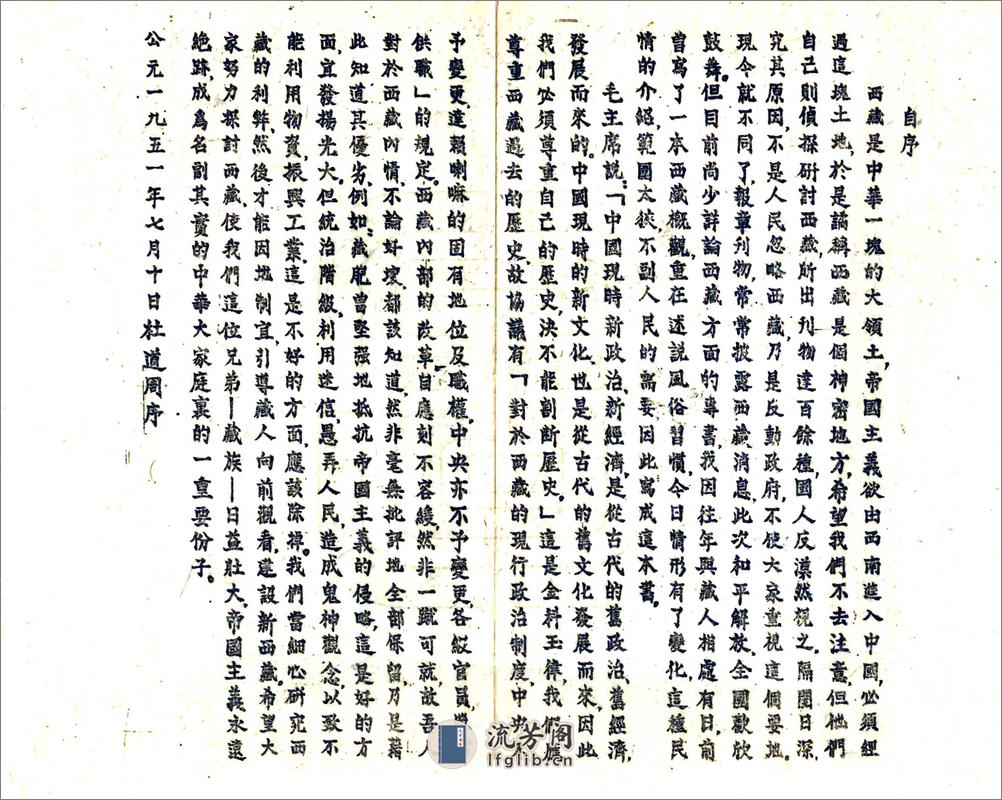 自序
西藏是中華一塊的大領土，帝國主義欲由西南進入中國，必須經
過這塊土地，於是謠稱西藏是個神密地方，希望我們不去注意，但他們
自己則偵探研討西藏，所出刊物達百餘種，國人反漠然視之。隔閡日深，
究其原因，不是人民忽略西藏，乃是反動政府，不使大家重視這個要地。
現今就不同了，報章刊物，常常披露西藏消息，此次和平解放，全國歡欣
鼓舞。但目前尚少詳論西藏方面的專書，我因往年與藏人相處有日，前
曾寫了一本西藏概觀，重在述說風俗習慣，今日情形有了變化，這種民
情的介紹，範圍太狹，不副人民的需要，因此寫成這本書。
毛主席說：「中國現時新政治新經濟，是從古代的舊政治、舊經濟，
發展而來的。中國現時的新文化，也是從古代的舊文化發展而來，因此
我們必須尊重自己的歷史，決不能割斷歷史。」這是金科玉律，我們應
尊重西藏過去的歷史，故協議有「對於西藏的現行政治制度，中央不
予變更達賴喇嘛的固有地位及職權，中央亦不予變更，各級官員，照
供職」的規定。西藏內部的改革自應刻不容緩，然非一蹴可就，故吾人
對於西藏內情，不論好壞，都該知道，然非毫無批評地全部保留，乃是藉
此知道其優劣，例如：藏胞曾堅强地抵抗帝國主義的侵略，這是好的方
面，宜發揚光大。但統治階級，利用迷信，愚弄人民，造成鬼神觀念，以致不
能利用物資，振興工業，這是不好的方面，應該除掉。我們當細心研究西
藏的利弊，然後才能因地制宜，引導藏人向前觀看，建設新西藏。希望大
家努力探討西藏，使我們這位兄弟——藏族——日益壯大，帝國主義永遠
絕跡，成爲名副其實的中華大家庭裏的一重要份子。
公元一九五一年七月十日杜道周序
流芳閣
lfglib.cn